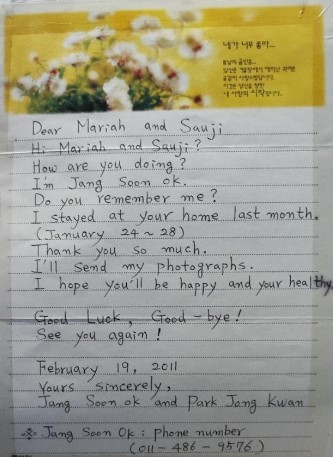 네가 너무 좋아...
Dear Mariah and Sauji
Hi Mariah and Sauji?
How are you doing?
I'm Jang Soon ok.
Do you remember me?
I stayed at your home last month.
(January 24 ~ 28)
Thank you so much.
I'll send my photographs.
I hope you'll be happy and your healthy.
Good Luck, Good-bye!
See you again!
February 19, 2011
Yours sincerely,
Jang Soon ok and Park Jong Kwan
※ Jang Soon Ok : phone number
(011-486-9576)